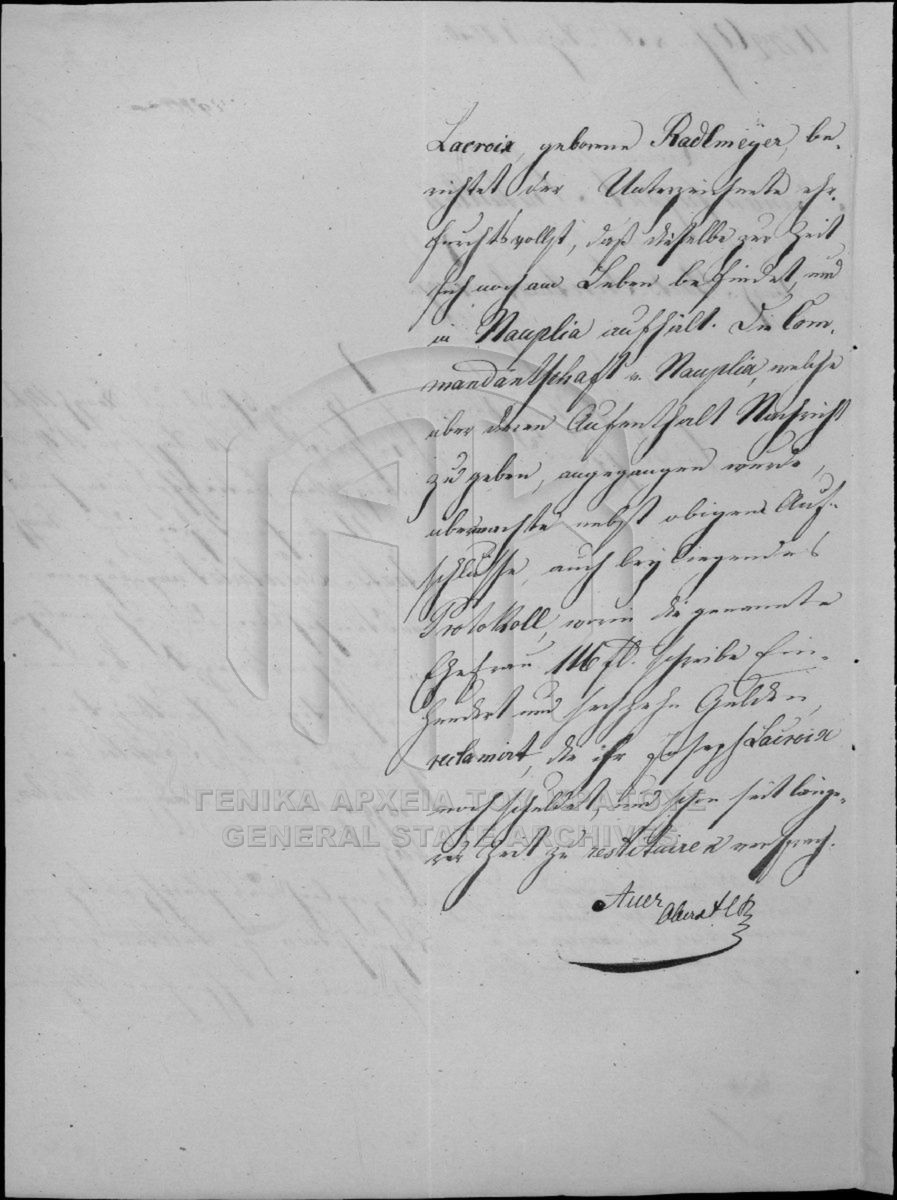 Lacroix, geborene Radlmeyer, be-
richtet der Unterzeichnete ehr-
furchtsvollst, daß dieselbe zur Zeit
sich noch am Leben befindet, und
in Nauplia aufhält. Die Com-
mandantschaft v. Nauplia, welche
über deren Aufenthalt Nachricht
zu geben, angegangen wurde,
übermachte nebst obigem Auf-
schlusse, auch beyliegendes
Protokoll, worin die genannte
Ehefrau 116 fl. schreibe Ein-
hundert und sechzehn Gulden
reclamirt, die ihr Joseph Lacroix
noch schuldet, und schon seit länge-
rer Zeit zu restituiren versprach.
Auer
ΓΕΝΙΚΑ ΑΡΧΕΙΑ ΤΟΥ ΚΡΑΤΟΥΣ
GENERAL STATE ARCHIVES